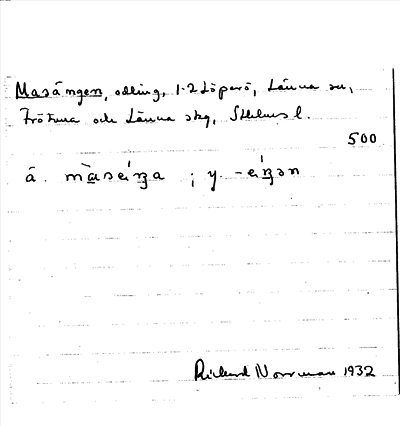 Masängen, odling, 1-2 Löparö, Länna sn,
Frötuna och Länna skg, Sthlms l.
500
ä. màsæ´ŋa ; y. -æ´ŋən
Rickard Norrman 1932